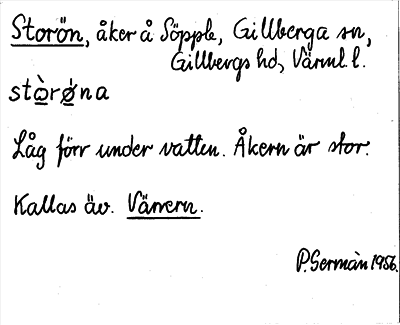 Storön, åker å Söpple, Gillberga sn,
Gillbergs hd, Värml. l.
stò̲rǿ̲na
Låg förr under vatten. Åkern är stor.
Kallas äv. Vänern.
P. Germàn 1956.